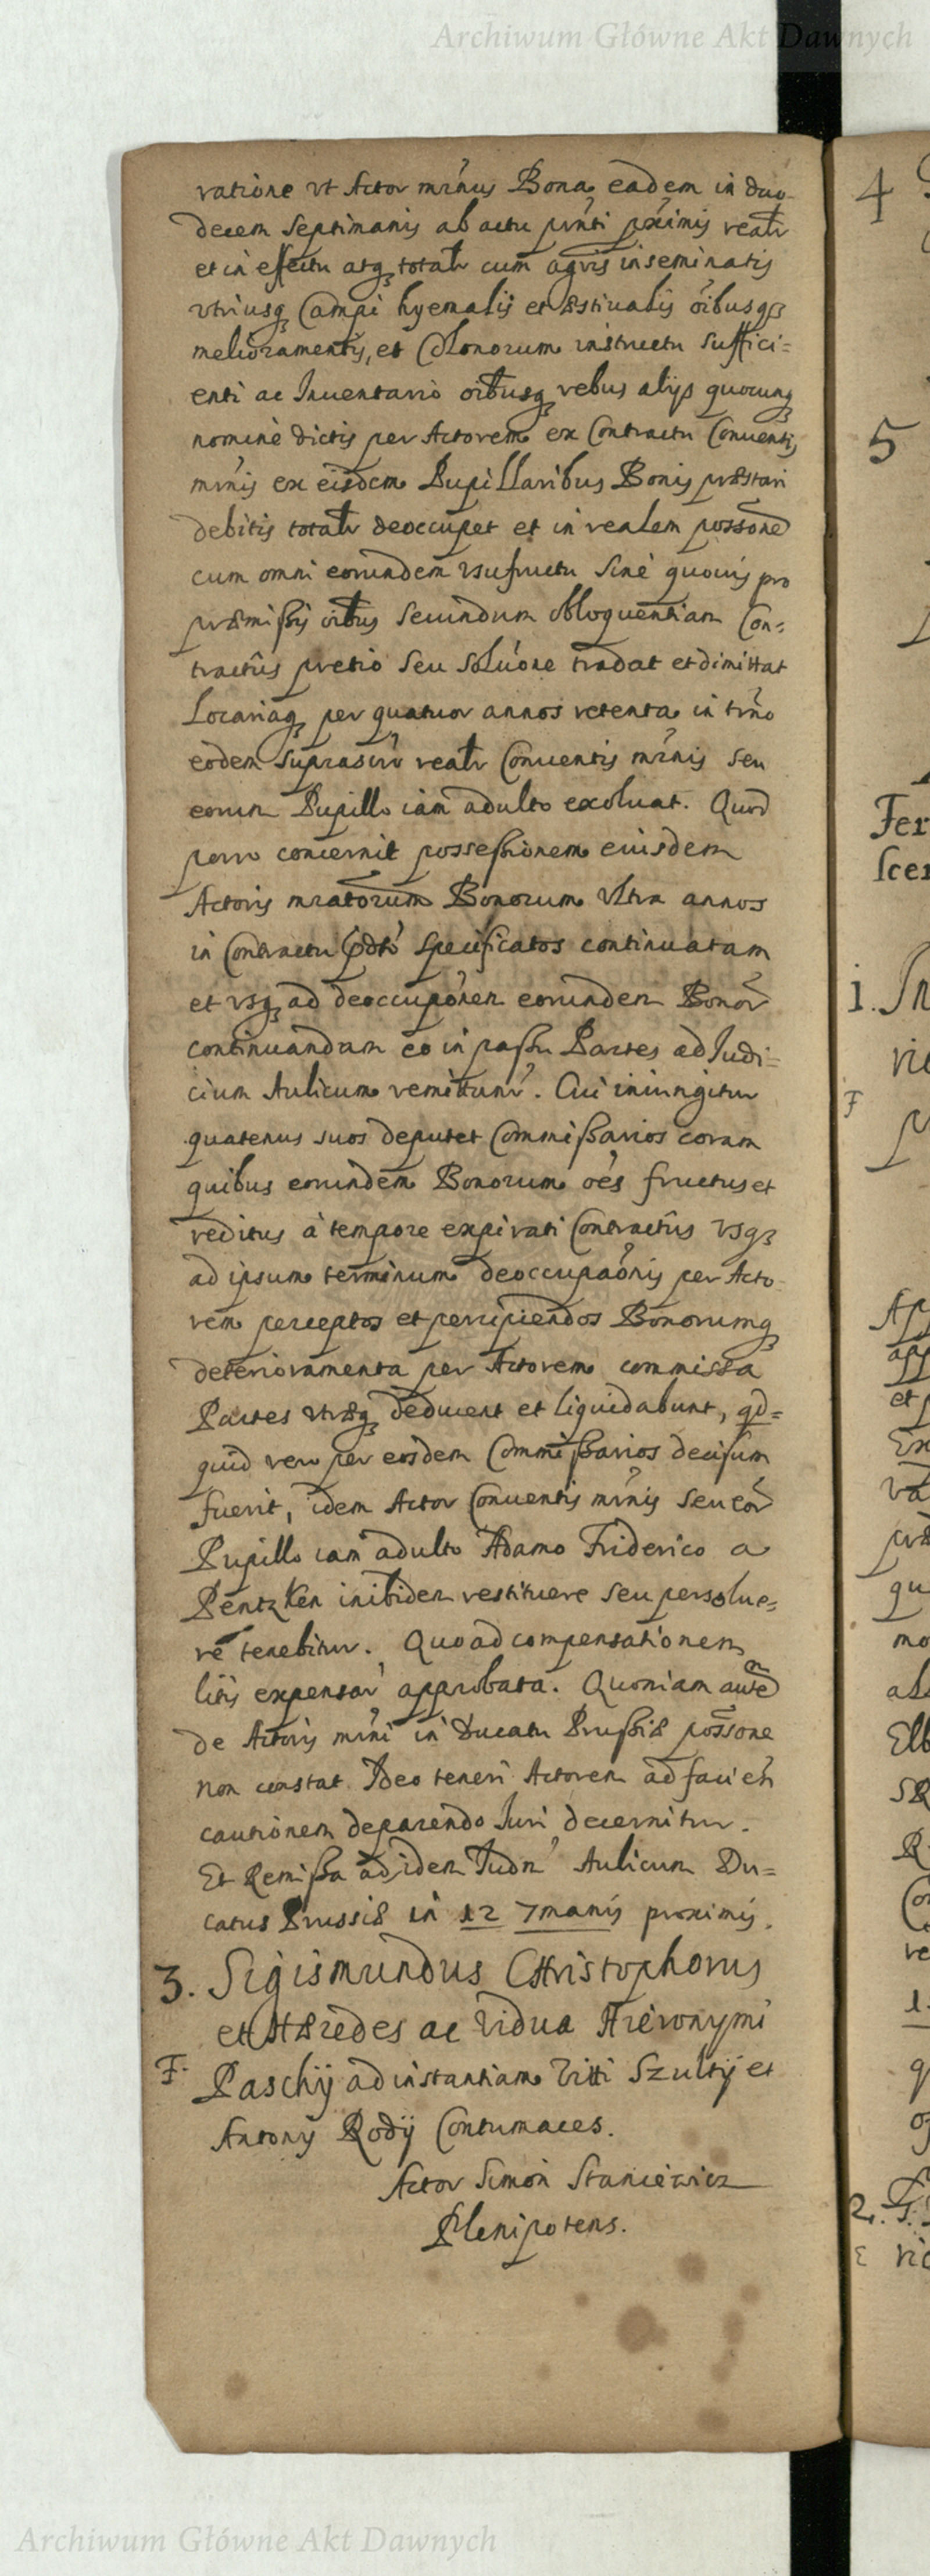 Archiwum Główne Akt Dawnych
ratione ut Actor mŕnus Bona eadem in duo-
decem Septimanis ab actu pŕnti pŕximis realr
et in effectu atq totalr cum agris inseminatis
utriusq Campi hyemalis et æstivalis oibusqȝ
melioramentis, et Colonorum instructu suffici=
enti ac Inventario oibusq rebus alijs quocunq
nomine dictis per Actorem ex Contractu Conventis
mŕnis ex eisdem Pupillaribus Bonis præstari
debitis totalr deoccupet et in realem possone
cum omni eorundem usufructu sine quovis pro
præmissis oibus secundum obloquentiam Con=
tractûs pretio seu soluóne tradat et dimittat
Locariaq per quatuor annos retenta in trno
eodem suprascrii realr Conventis mŕnis seu
eorum Pupillo iam adulto exoluat. Quod
porro concernit possessionem eiusdem
Actoris mratorum Bonorum ultra annos
in Contractu pdto specificatos continuatam
et usq ad deoccupónem eorundem Bonor
continuandam eo in passu Partes ad Judi=
cium Aulicum remittunr. Cui iniungitur
quatenus suos deputet Commissarios coram
quibus eorundem Bonorum oés fructus et
reditus à tempore expirati Contractûs usqȝ
ad ipsum terminum deoccupaónis per Acto-
rem perceptos et percipiendos Bonorumq
deterioramenta per Actorem commissa
Partes utræq deducent et liquidabunt, qd=
quid vero per eosdem Commissarios decisum
fuerit, idem Actor Conventis mŕnis seu eor
Pupillo iam adulto Adamo Friderico a
Pentzken inibidem restituere seu persolue=
re tenebitur. Quo ad compensationem
litis expensar approbata. Quoniam autē
de Actoris mŕni in Ducatu Prussiæ possone
non constat Ideo teneri Actorem ad facień
cautionem de parendo Juri decernitur.
Et Remissa ad idem Judm Aulicum Du=
catus Prussiæ in 12 7manis proximis.
3. Sigismundus Christophorus
et Hæredes ac Vidua Hieronymi
F. Paschij ad instantiam Vitti Szultij et
Antonij Rodij Contumaces.
Actor Simon Staniewicz
Plenipotens.
4
5
Fer
scer
1. In
F
App
app
et p
Ex
va
præ
qu
mo
Elb
ve
1.
2.
Archiwum Główne Akt Dawnych